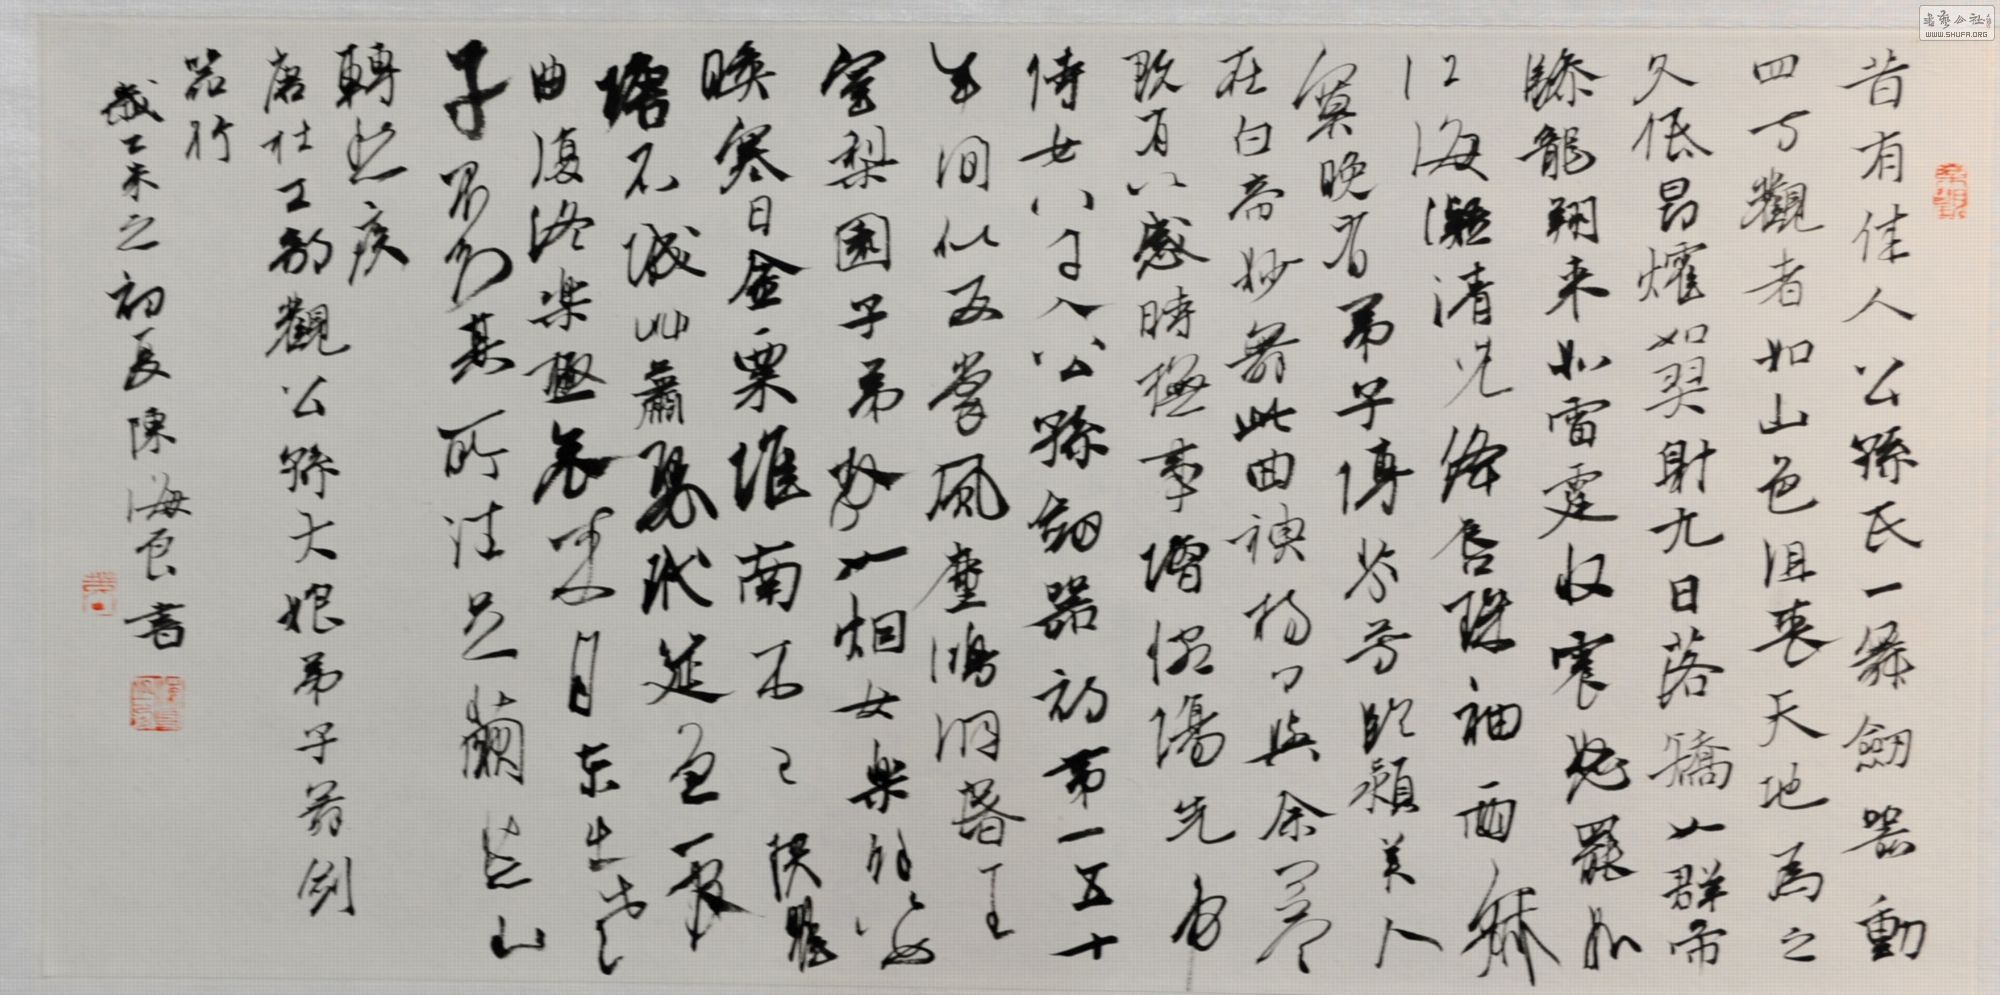 昔有佳人公孫氏一舞劍器動
四方觀者如山色沮喪天地為之
久低昂㸌如羿射九日落矯如群帝
驂龍翔來如雷霆收震怒罷如
江海凝清光絳唇珠袖兩寂
寞晚有弟子傳芬芳臨潁美人
在白帝妙舞此曲神揚々與余問答
既有以感時撫事增惋傷先帝
侍女八千人公孫劍器初第一五十
年间似反掌風塵澒洞昏王
室梨園子弟散如烟女樂餘姿
映寒日金粟堆南木已拱瞿
塘石城草蕭瑟玳筵急管
曲復終樂極哀來月東出老夫
子不知其所往足繭荒山
轉愁疾
唐杜工部觀公孫大娘弟子舞劍
器行
歲乙未之初夏陳海良書
書藝公社
WWW.SHUFA.ORG